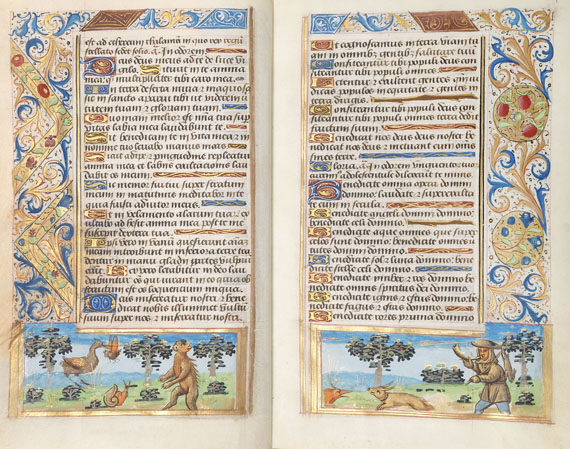 est ad ethereum thalamu in quo rex regu
stellato sedet solio. a In odorem
Deus deus meus ad te de luce vi
gilo. Sitivit in te anima
mea: multipliciter tibi caro mea.
In terra deserta invia et inaquosa
sic in sancto apparui tibi ut viderem vir
tutem tuam et gloriam tuam.
Quoniam melior est mia tua super
vitas labia mea laudabunt te.
Sic benedicam te in vita mea et in
nomine tuo levabo manus meas.
Sicut adipe et pinguedine repleatur
anima mea et labiis exultationis lau
dabit os meum.
Si memor fui tui super stratum
meum in matutinis meditabor in te
quia fuisti adiutor meus.
Et in velamento alarum tuaru exul
tabo adhesit anima mea post te me
suscepit dextera tua.
Ipsi vero in vanu quesierunt aia
mea introibunt in inferiora terre tra
dentur in manus gladii partes vulpiu
erunt. Rex vero letabitur in deo lau
dabuntur oms qui iurant in eo quia ob
structum est os loquentium iniqua.
Deus misereatur nostri et bene
dicat nobis illuminet vultu
suum super nos et misereatur nostri
Ut cognoscamus in terra viam tua
in omnibus gentibus salutare tuu
Confiteantur tibi populi deus con
fiteantur tibi populi omnes.
Letentur et exultent gentes qm iu
dicas populos in equitate et gentes in
terra dirigis.
Confiteantur tibi populi deus con
fiteantur tibi populi omnes terra dedit
fructum suum.
Benedicat nos deus deus noster be
nedicat nos deus et metuant eum oms
fines terre.
Gloria. a In odorem unguentoru tuoru
currimus adolescentule dilexerunt te nimis
Benedicite omnia opera domini
domino: laudate et superexalta
te eum in secula.
Benedicite angeli domini domino
benedicite celi domino.
Benedicite aque omnes que super
celos sunt domino: benedicite omnes
virtutes domini domino.
Benedicite sol et luna domino: bene
dicite stelle celi domino.
Benedicite imber et ros domino be
nedicite omnes spiritus dei domino.
Benedicite ignis et estus domino: be
nedicite frigus et estus domino.
Benedicite rores et pruina domino